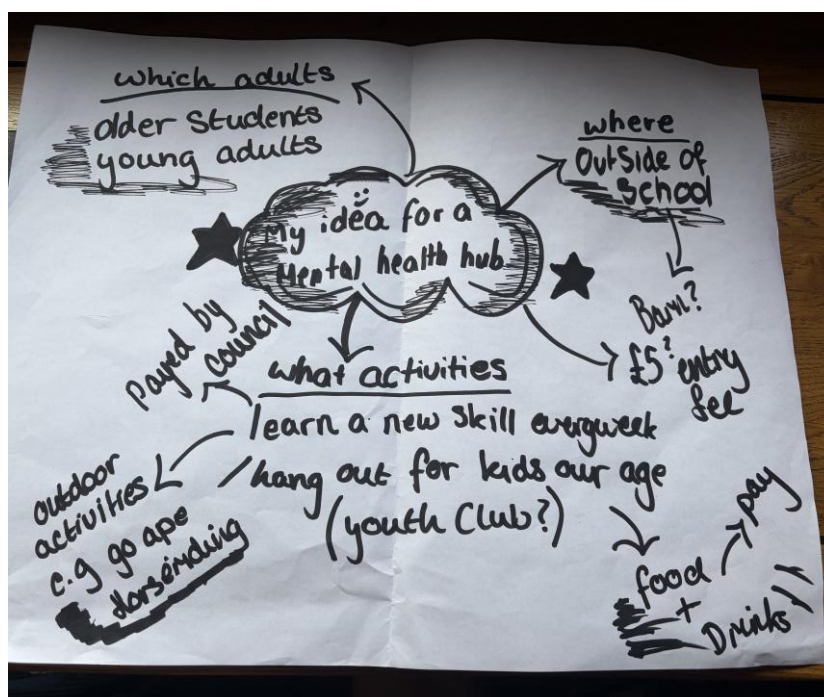 which adults
older students
young adults
where
Outside of
School
My idea for a
Mental health hub
Barn?
£5? entry
fee
Payed by
council
what activities
learn a new skill everyweek
hang out for kids our age
(youth Club?)
outdoor
activities
e.g go ape
Horseriding
food
+
Drinks
pay